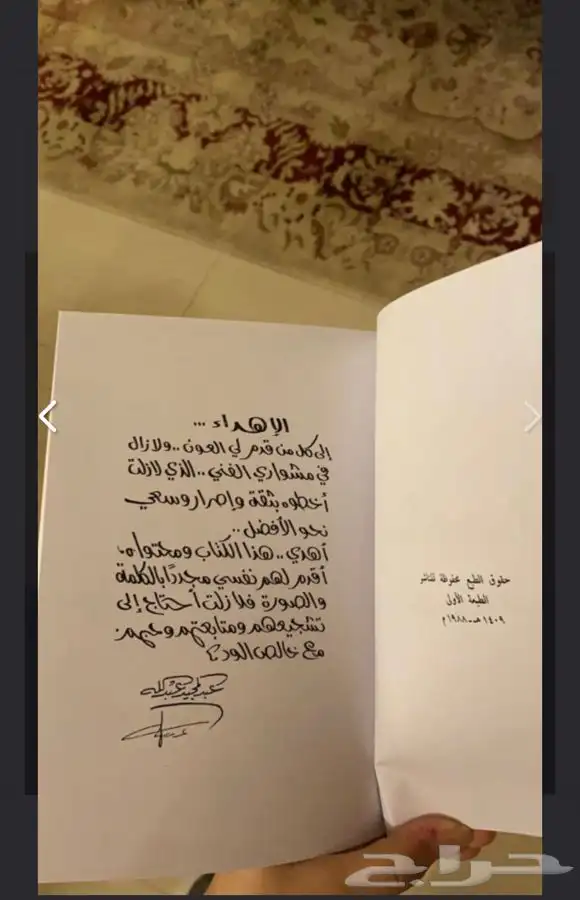 حقوق الطبع محفوظة للناشر
الطبعة الأولى
١٤٠٩هـ - ١٩٨٨م
الإهداء ...
إلى كل من قدم لي العون .. ولازال
في مشواري الفني .. الذي لازلت
أخطوه بثقة وإصرار وسعي
نحو الأفضل ..
أهدي .. هذا الكتاب ومحتواه،
أقدم لهم نفسي مجدداً بالكلمة
والصورة فلازلت أحتاج إلى
تشجيعهم ومتابعتهم وحبهم.
مع خالص الود،
عبدالمجيد عبدالله
حراج